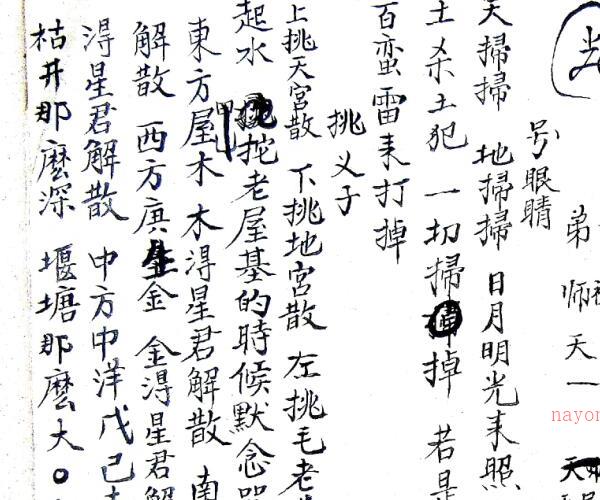 弟
师天一
号眼睛
天掃掃 地掃掃 日月明光来照
土杀土犯 一切掃掉 若是
百蛮雷来打掉
挑义子
上挑天宫散 下挑地宫散 左挑毛老
起水 挖老屋基的時候默念
東方屋木 木淂星君解散 南
解散 西方庚金 金淂星君解
淂星君解散 中方中洋戊己
枯井那麽深 堰塘那麽大。
nayon